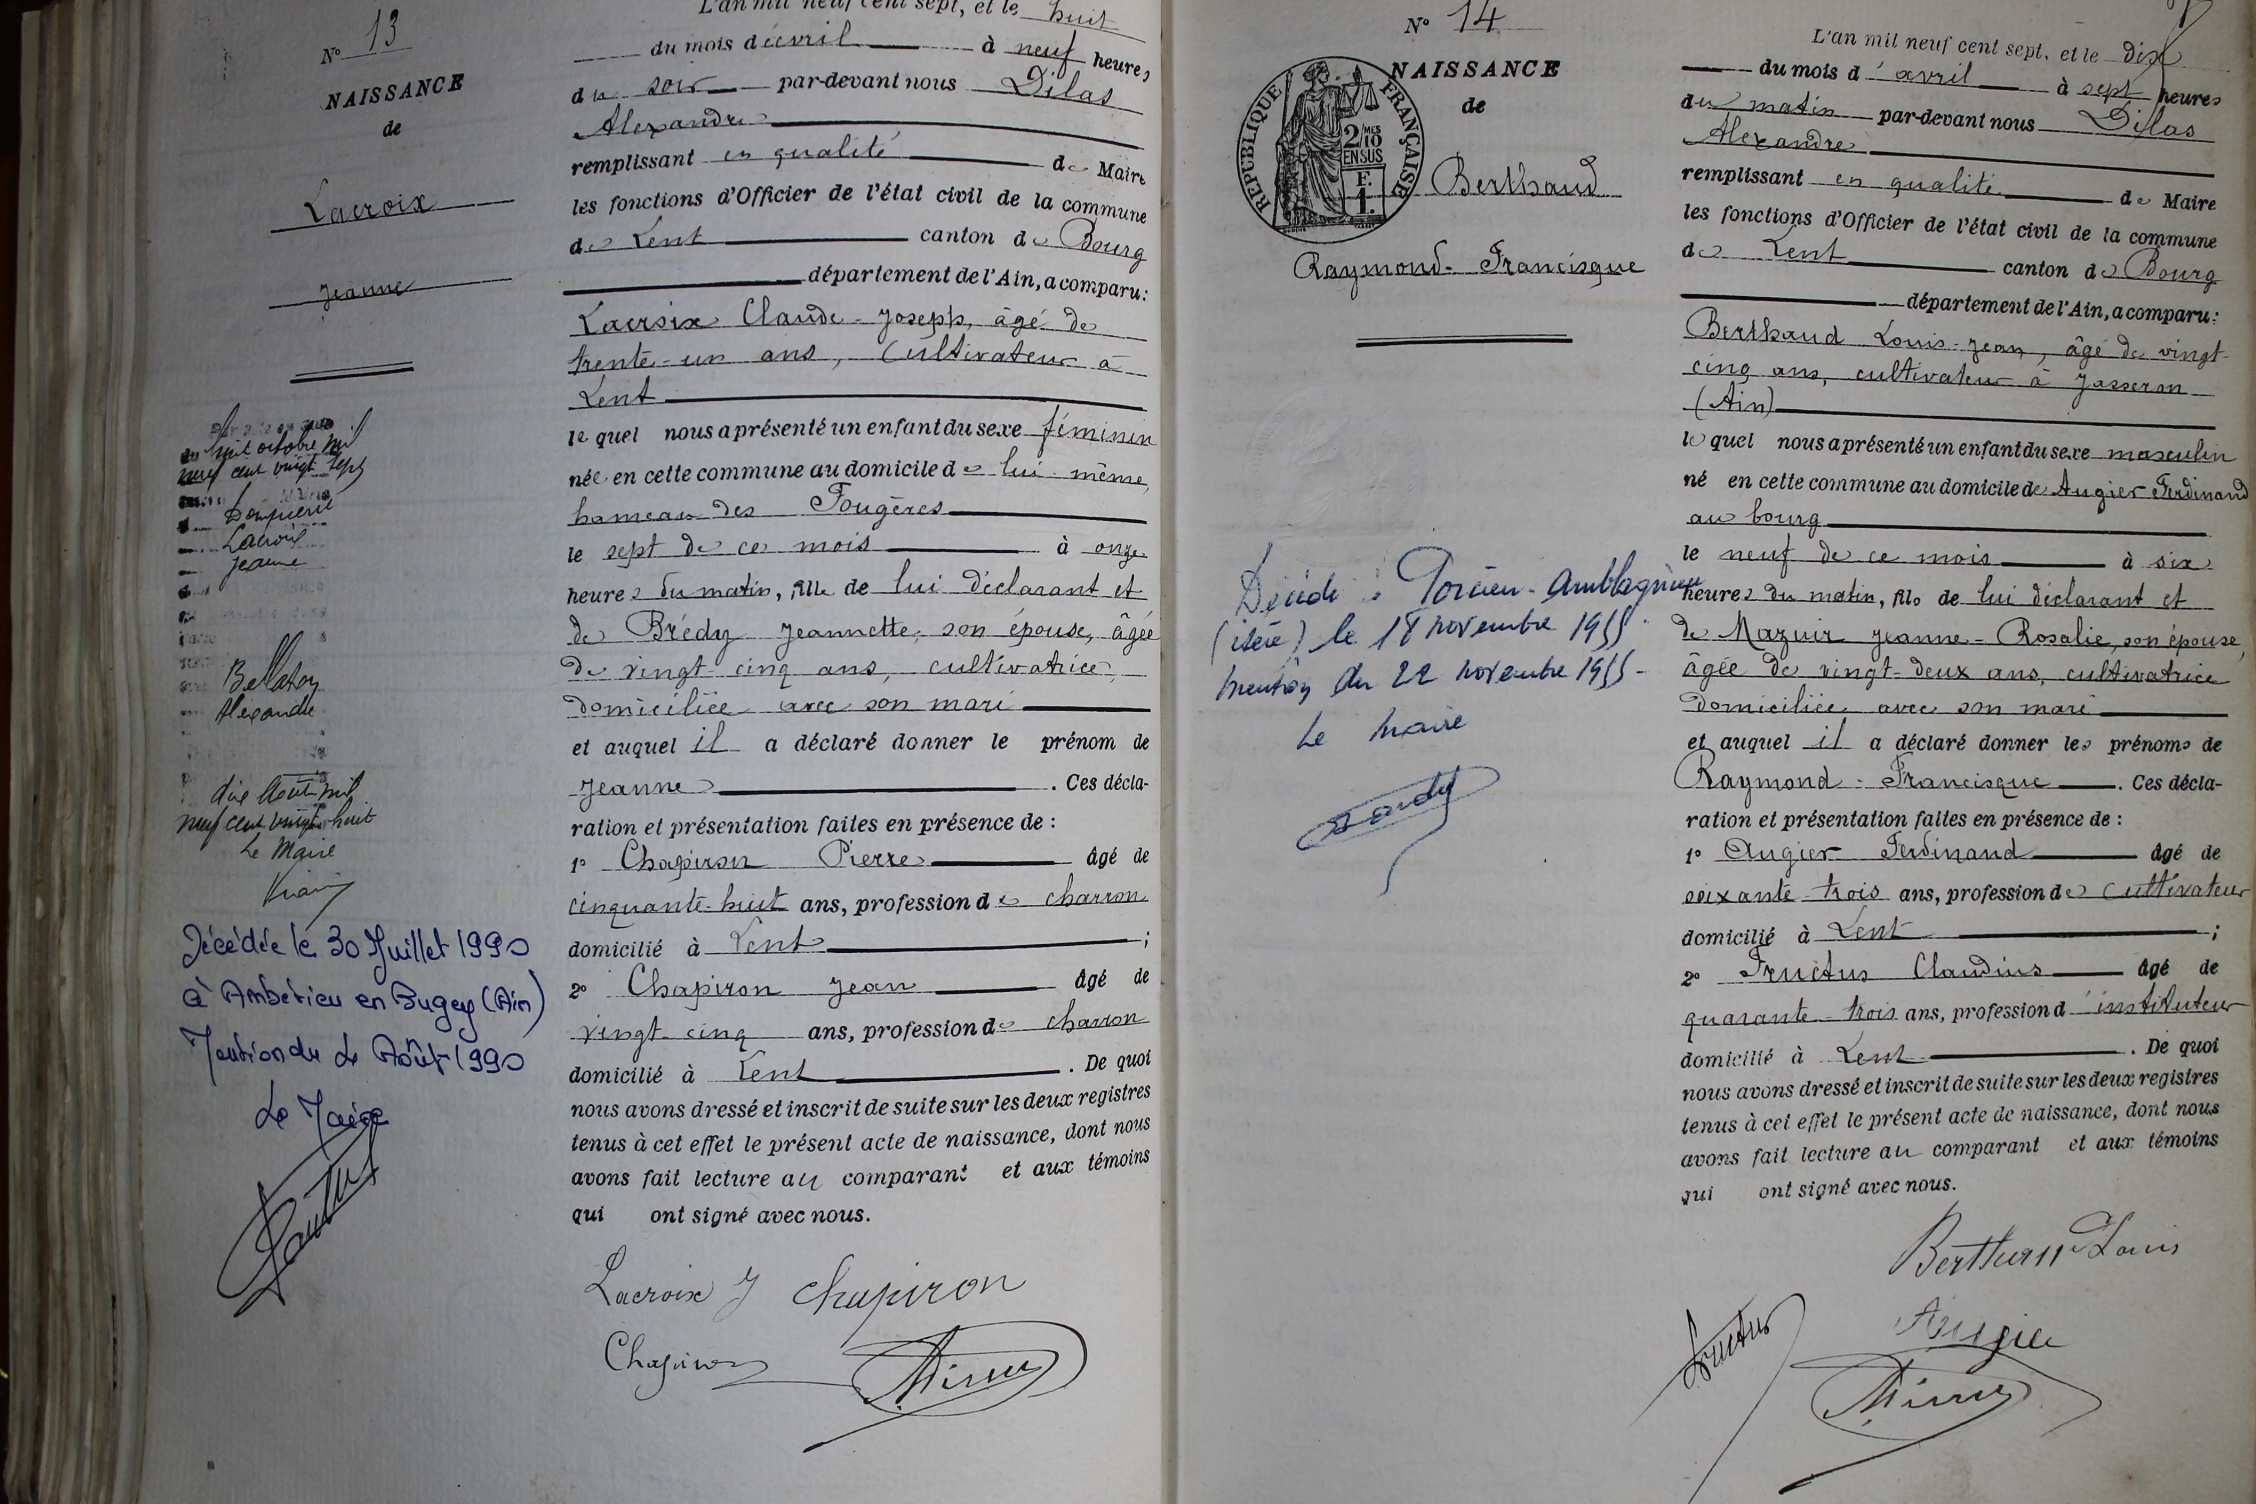 N° 13
NAISSANCE
de
Lacroix
Jeanne
huit octobre mil
neuf cent vingt sept
Dompierre
Lacroix
Jeanne
Bellaton
Alexandre
dix Août mil
neuf cent vingt huit
Le Maire
Décédée le 30 Juillet 1990
à Ambérieu en Bugey (Ain)
Mention du 2 Août 1990
Le Maire
L'an mil neuf cent sept, et le huit
du mois d'avril à neuf heures
du soir par-devant nous Dilas
Alexandre
remplissant en qualité de Maire
les fonctions d'Officier de l'état civil de la commune
de Lent canton de Bourg
département de l'Ain, a comparu :
Lacroix Claude-Joseph, âgé de
trente-un ans, cultivateur à
Lent
lequel nous a présenté un enfant du sexe féminin
née en cette commune au domicile de lui-même,
hameau des Fougères
le sept de ce mois à onze
heures du matin, fille de lui déclarant et
de Brédy Jeannette, son épouse, âgée
de vingt-cinq ans, cultivatrice,
domiciliée avec son mari
et auquel il a déclaré donner le prénom de
Jeanne . Ces décla-
ration et présentation faites en présence de :
1° Chapiron Pierre âgé de
cinquante-huit ans, profession de charron
domicilié à Lent ;
2° Chapiron Jean âgé de
vingt-cinq ans, profession de charron
domicilié à Lent . De quoi
nous avons dressé et inscrit de suite sur les deux registres
tenus à cet effet le présent acte de naissance, dont nous
avons fait lecture au comparant et aux témoins
qui ont signé avec nous.
Lacroix J Chapiron
Chapiron
N° 14
NAISSANCE
de
REPUBLIQUE FRANÇAISE
2/10 MES
EN SUS
F.
1.
Berthaud
Raymond-Francisque
Décédé à Porcieu-Amblagnieu
(isère) le 18 novembre 1955.
mention du 22 novembre 1955-
Le Maire
L'an mil neuf cent sept, et le dix
du mois d'avril à sept heures
du matin par-devant nous Dilas
Alexandre
remplissant en qualité de Maire
les fonctions d'Officier de l'état civil de la commune
de Lent canton de Bourg
département de l'Ain, a comparu :
Berthaud Louis-Jean, âgé de vingt-
cinq ans, cultivateur à Jasseron
(Ain)
lequel nous a présenté un enfant du sexe masculin
né en cette commune au domicile de Augier Ferdinand
au bourg
le neuf de ce mois à six
heures du matin, fils de lui déclarant et
de Mazuir Jeanne-Rosalie, son épouse,
âgée de vingt-deux ans, cultivatrice
domiciliée avec son mari
et auquel il a déclaré donner les prénoms de
Raymond-Francisque . Ces décla-
ration et présentation faites en présence de :
1° Augier Ferdinand âgé de
soixante-trois ans, profession de cultivateur
domicilié à Lent ;
2° Fructus Claudius âgé de
quarante-trois ans, profession d'instituteur
domicilié à Lent . De quoi
nous avons dressé et inscrit de suite sur les deux registres
tenus à cet effet le présent acte de naissance, dont nous
avons fait lecture au comparant et aux témoins
qui ont signé avec nous.
Louis
Fructus
Augier